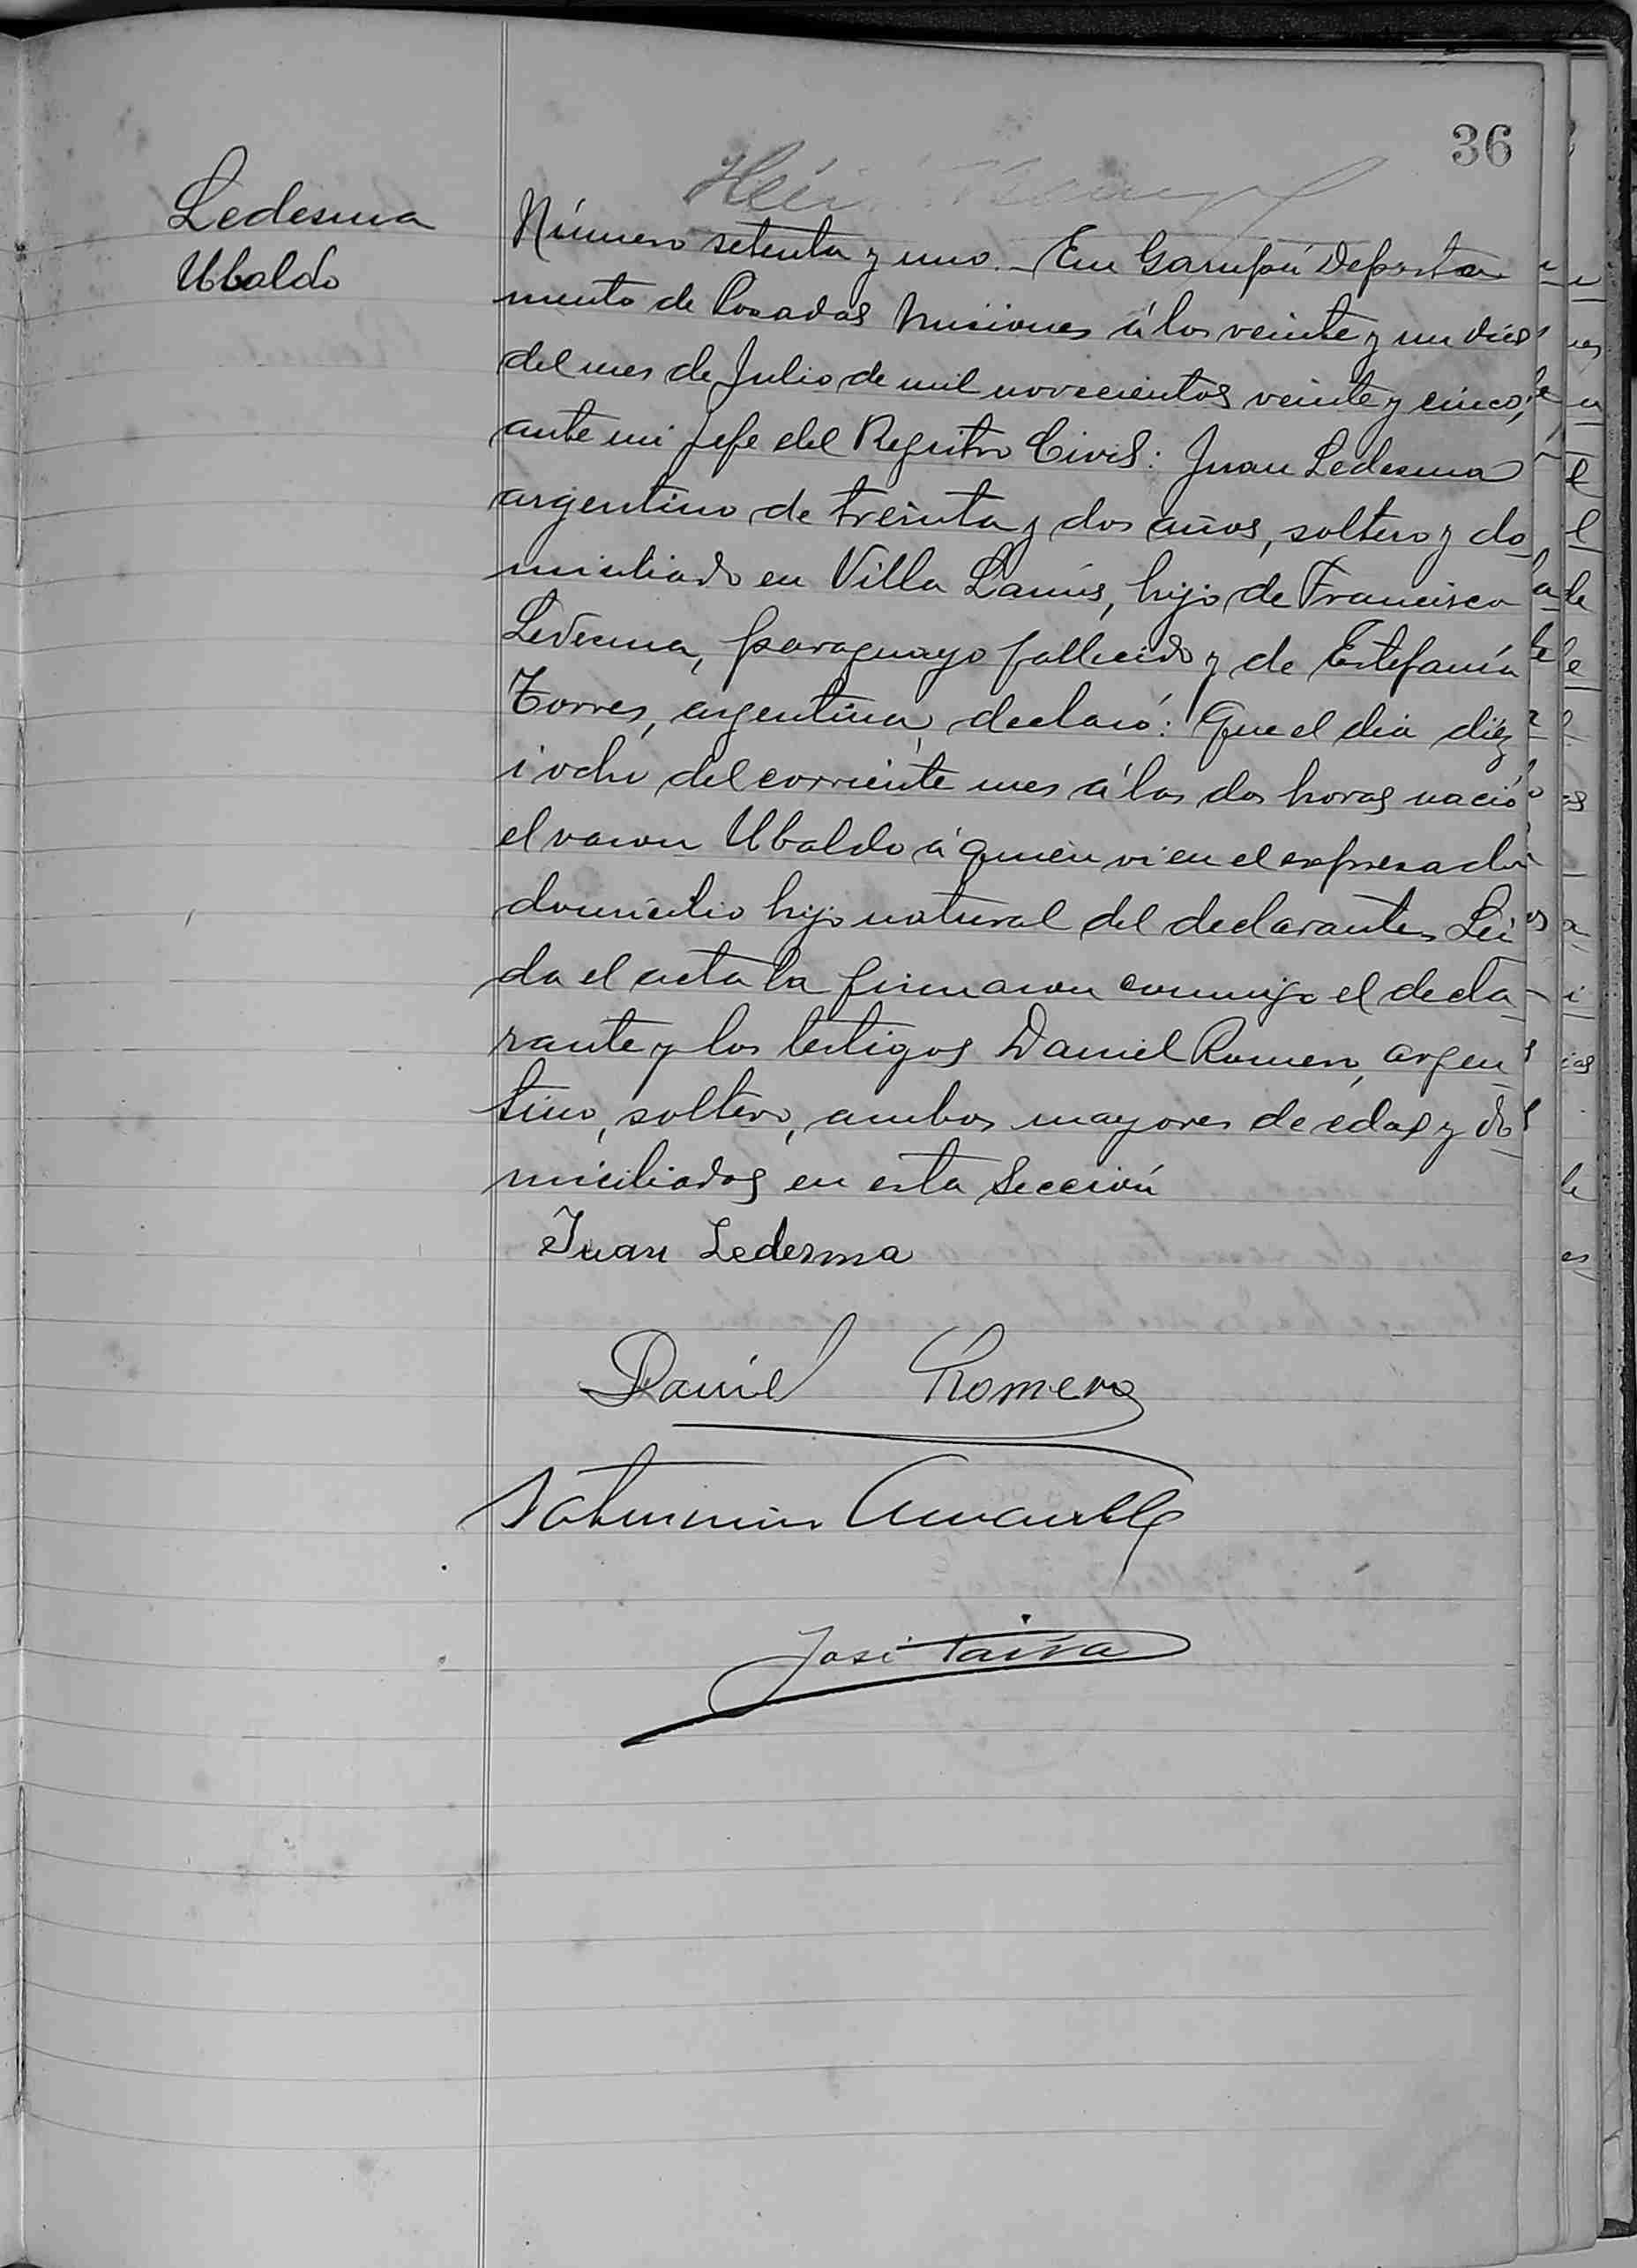 36
Ledesma
Ubaldo
Número setenta y uno.- En Garupá Departa
mento de Posadas Misiones á los veinte y un dias
del mes de Julio de mil novecientos veinte y cinco,
ante mi Jefe del Registro Civil: Juan Ledesma
argentino de treinta y dos años, soltero y do
miciliado en Villa Lanús, hijo de Francisco
Ledesma, paraguayo fallecido y de Estefanía
Torres, argentina, declaró: Que el dia diéz
i ocho del corriente mes á las dos horas nació
el varon Ubaldo á quien vi en el expresado
domicilio hijo natural del declarante. Lei
da el acta la firmaron conmigo el decla-
rante y los testigos Daniel Romero, argen
tino, soltero, ambos mayores de edad y do
miciliados en esta Sección
Juan Ledesma
Daniel Romero
José Paiva